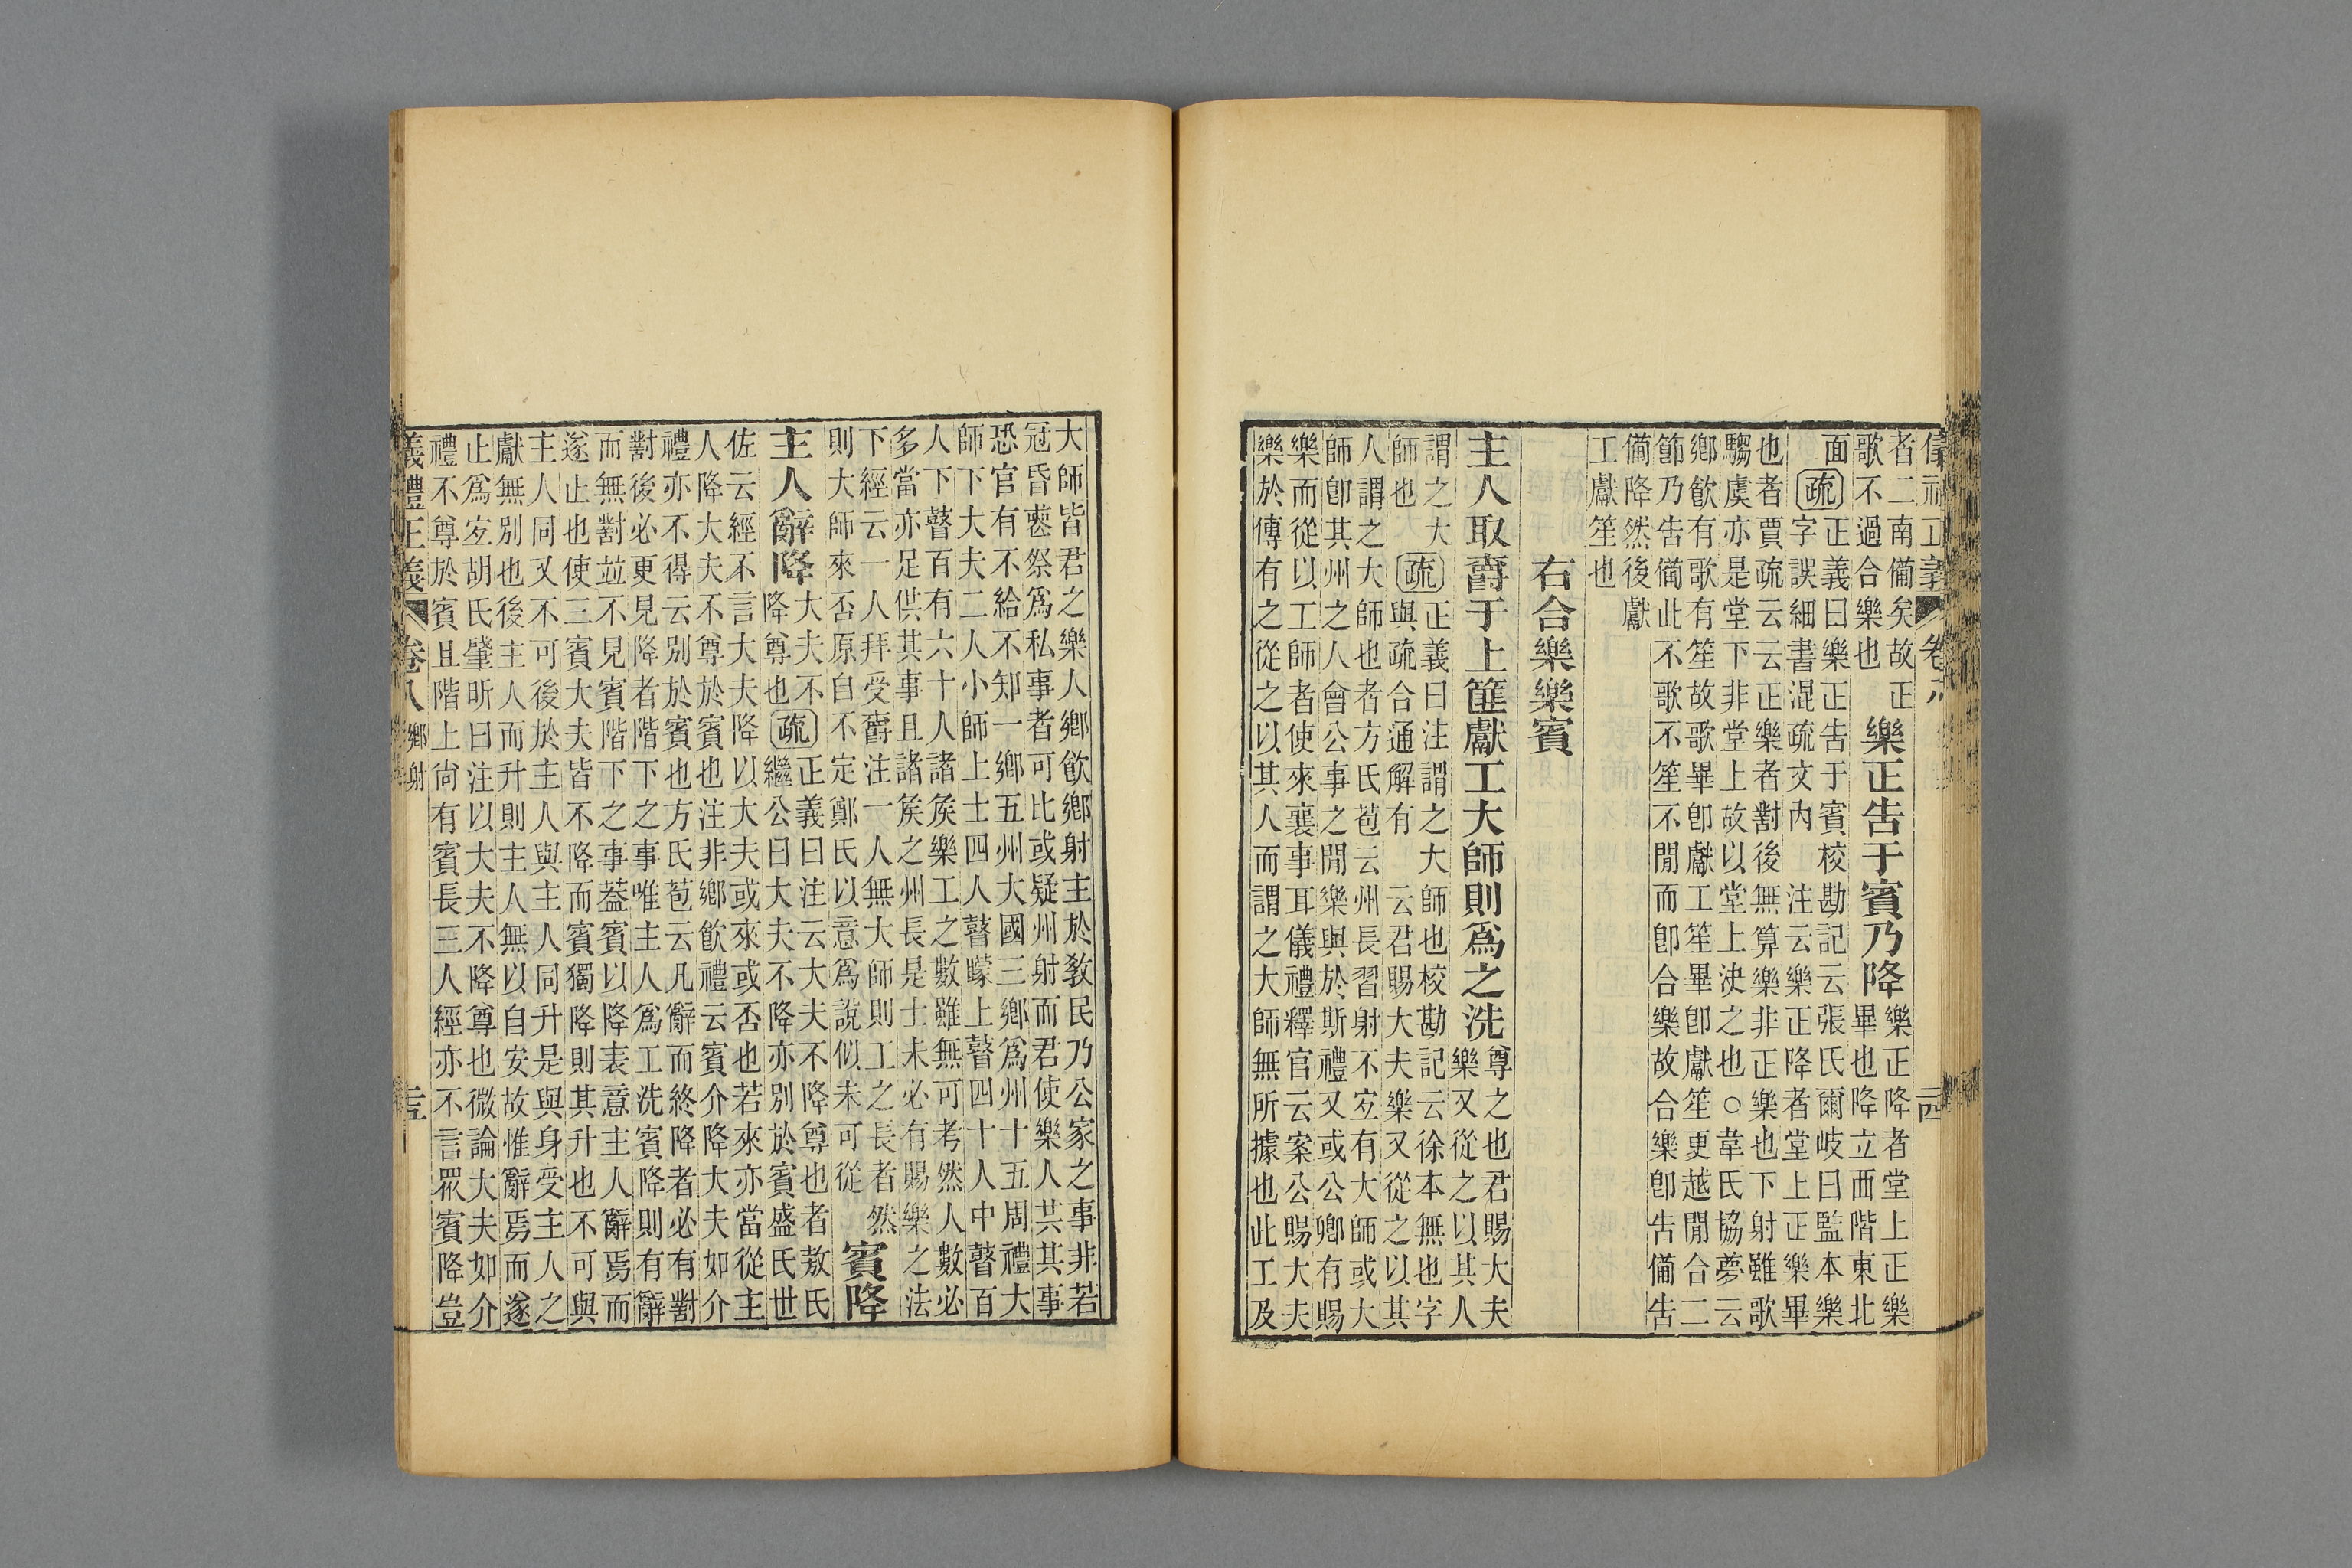 者二南備矣故 正
歌不過合樂也
樂正告于賓乃降
樂正降者堂上正樂
畢也降立西階東北
面
疏
正義曰樂正告于賓校勘記云張氏爾岐曰監本樂
字誤細書混疏文內 注云樂正降者堂上正樂畢
也者賈疏云云正樂者對後無算樂非正樂也下射雖歌
騶虞亦是堂下非堂上故以堂上決之也○韋氏協夢云
鄉飲有歌有笙故歌畢卽獻工笙畢卽獻笙更越閒合二
節乃告備此不歌不笙不閒而卽合樂故合樂卽告備告
備降然後獻
工獻笙也
右合樂樂賓
主人取爵于上篚獻工大師則爲之洗
尊之也君賜大夫
樂又從之以其人
謂之大
師也
疏
正義曰注謂之大師也校勘記云徐本無也字
與疏合通解有 云君賜大夫樂又從之以其
人謂之大師也者方氏苞云州長習射不宐有大師或大
師卽其州之人會公事之閒樂與於斯禮又或公卿有賜
樂而從以工師者使來襄事耳儀禮釋官云案公賜大夫
樂於傳有之從之以其人而謂之大師無所據也此工及
大師皆君之樂人鄉飲鄉射主於敎民乃公家之事非若
冠昏喪祭爲私事者可比或疑州射而君使樂人共其事
恐官有不給不知一鄉五州大國三鄉爲州十五周禮大
師下大夫二人小師上士四人瞽矇上瞽四十人中瞽百
人下瞽百有六十人諸矦樂工之數雖無可考然人數必
多當亦足供其事且諸矦之州長是士未必有賜樂之法
下經云一人拜受爵注一人無大師則工之長者然
則大師來否原自不定鄭氏以意爲說似未可從
賓降
主人辭降
大夫不
降尊也
疏
正義曰注云大夫不降尊也者敖氏
繼公曰大夫不降亦別於賓盛氏世
佐云經不言大夫降以大夫或來或否也若來亦當從主
人降大夫不尊於賓也注非鄉飲禮云賓介降大夫如介
禮亦不得云別於賓也方氏苞云凡辭而終降者必有對
對後必更見降者階下之事唯主人爲工洗賓降則有辭
而無對並不見賓階下之事葢賓以降表意主人辭焉而
遂止也使三賓大夫皆不降而賓獨降則其升也不可與
主人同又不可後於主人與主人同升是與身受主人之
獻無別也後主人而升則主人無以自安故惟辭焉而遂
止爲宐胡氏肇昕曰注以大夫不降尊也微論大夫如介
禮不尊於賓且階上尙有賓長三人經亦不言眾賓降豈
義禮正義 卷八 鄉射